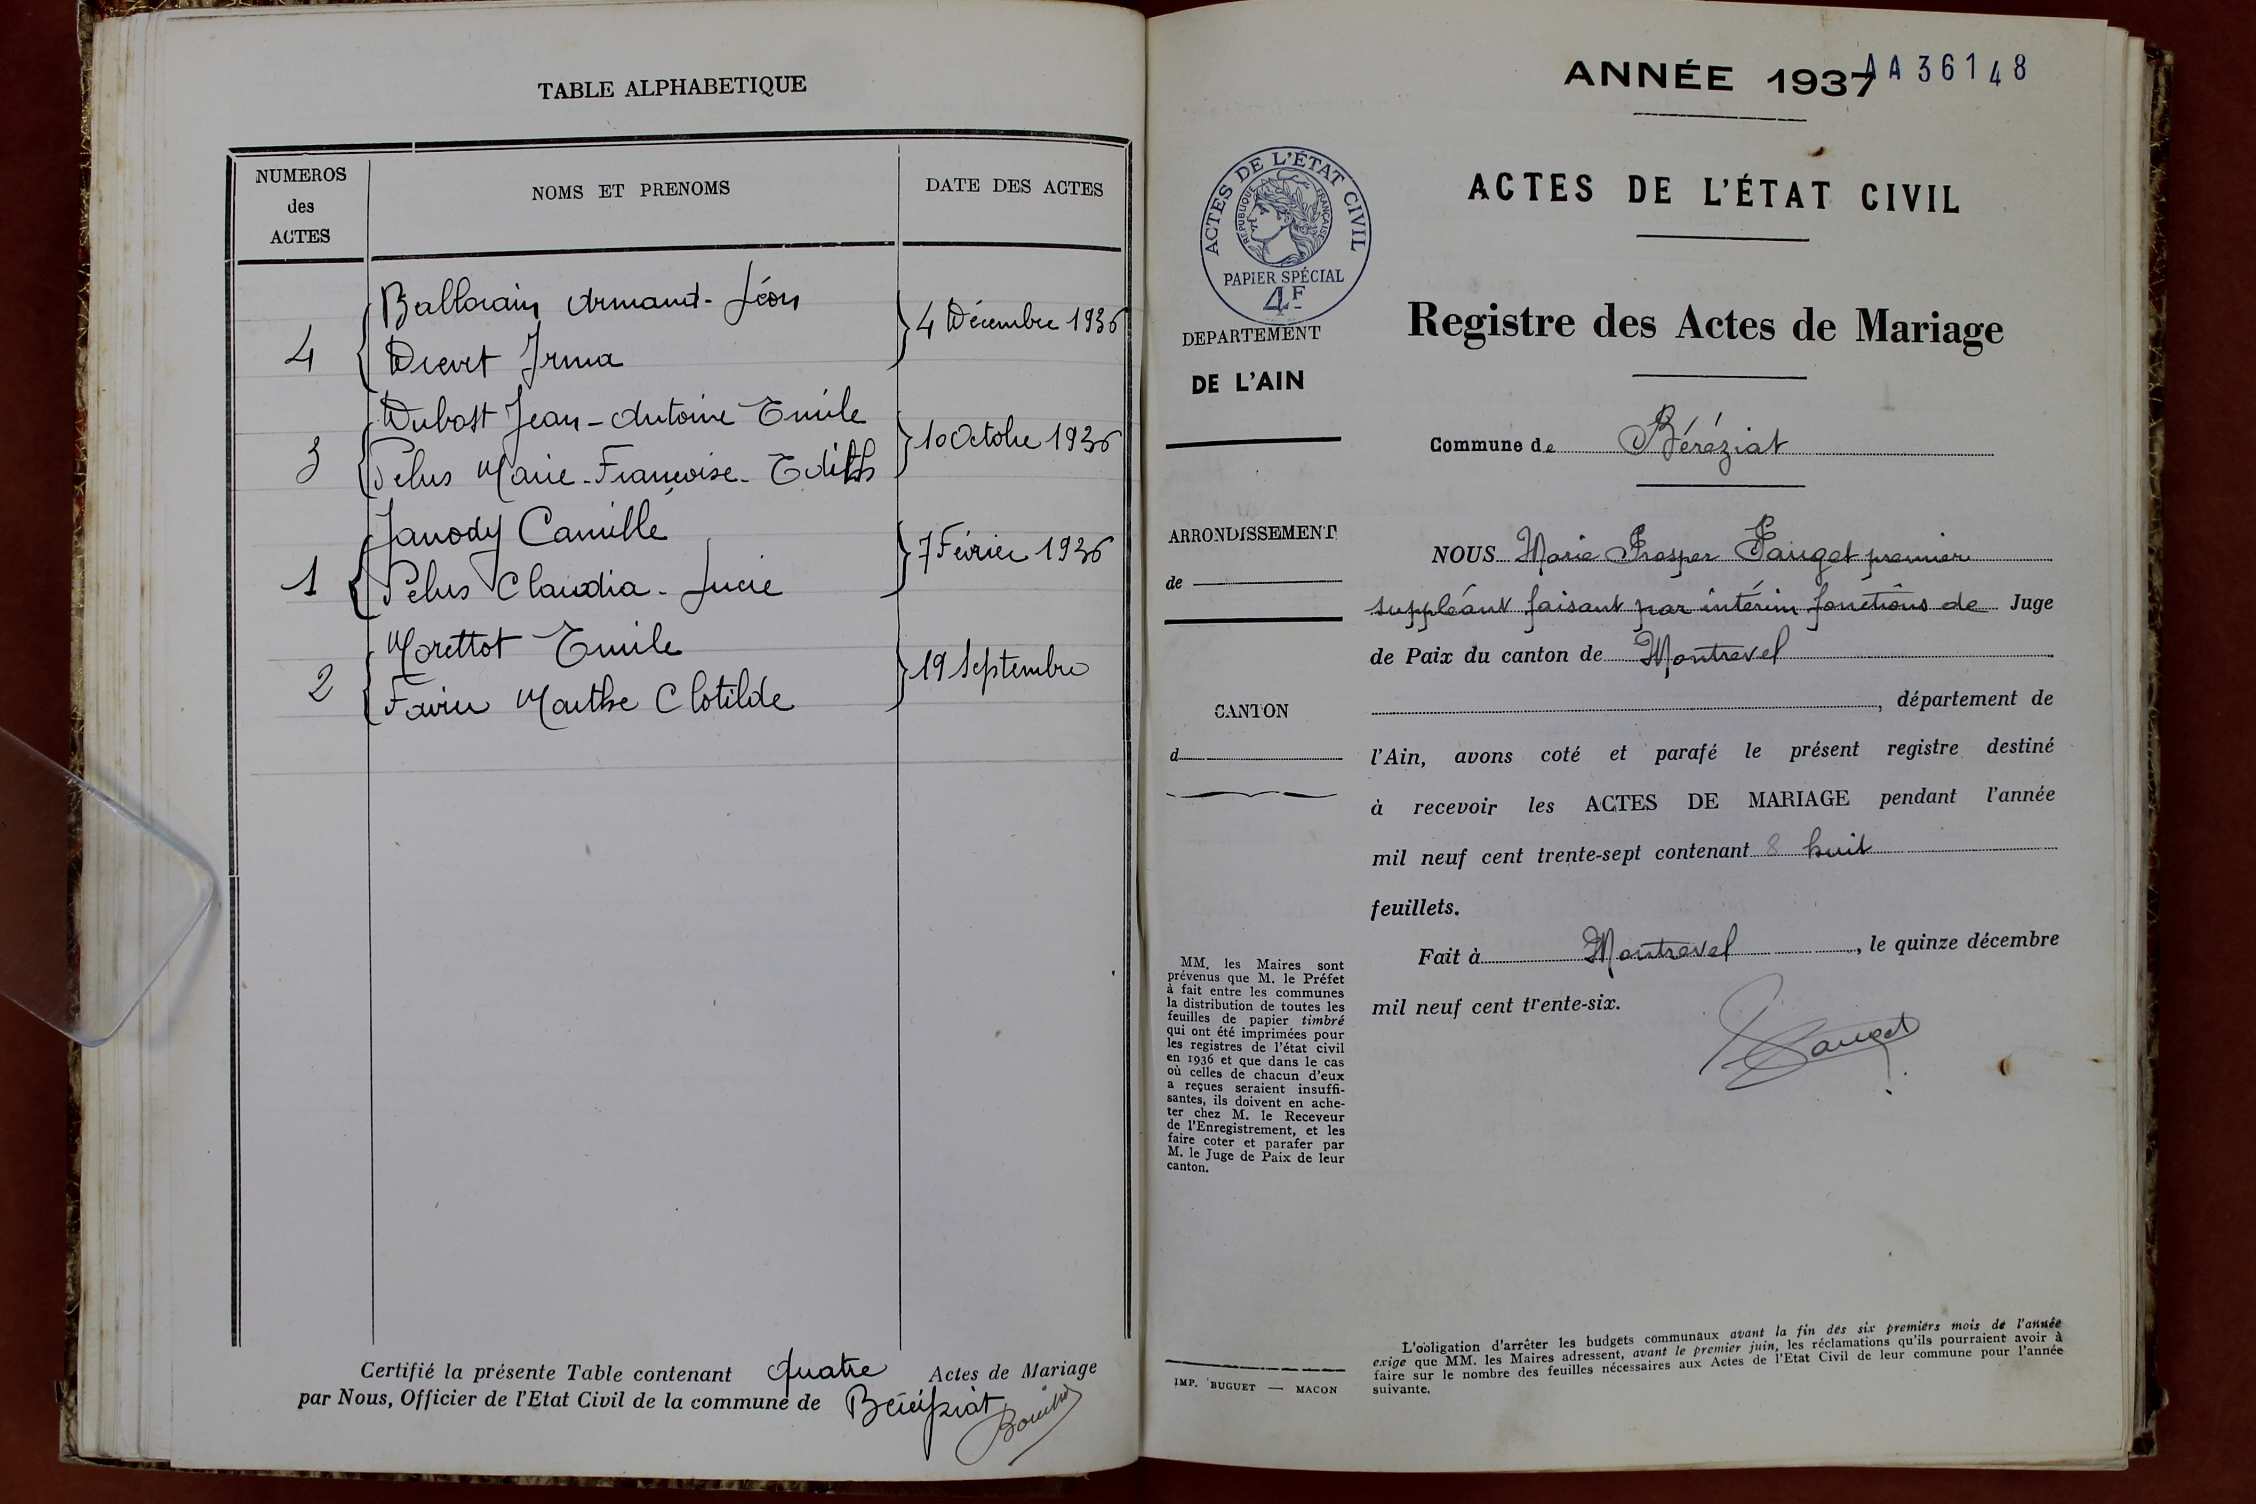 TABLE ALPHABETIQUE
NUMEROS
des
ACTES
NOMS ET PRENOMS
DATE DES ACTES
4
Ballorain Armand-Léon
Drevet Irma
4 Décembre 1936
3
Dubost Jean-Antoine Emile
Pelus Marie-Françoise-Edith
10 Octobre 1936
1
Janody Camille
Pelus Claudia-Lucie
7 Février 1936
2
Morettot Emile
Favier Marthe Clotilde
19 Septembre
Certifié la présente Table contenant quatre Actes de Mariage
par Nous, Officier de l'Etat Civil de la commune de Béréziat
ANNÉE 1937
AA 36148
ACTES DE L'ÉTAT CIVIL
RÉPUBLIQUE FRANÇAISE
PAPIER SPÉCIAL
4F
DEPARTEMENT
DE L'AIN
ARRONDISSEMENT
de
CANTON
d
MM. les Maires sont
prévenus que M. le Préfet
à fait entre les communes
la distribution de toutes les
feuilles de papier timbré
qui ont été imprimées pour
les registres de l'état civil
en 1936 et que dans le cas
où celles de chacun d'eux
a reçues seraient insuffi-
santes, ils doivent en ache-
ter chez M. le Receveur
de l'Enregistrement, et les
faire coter et parafer par
M. le Juge de Paix de leur
canton.
IMP. BUGUET — MACON
ACTES DE L'ÉTAT CIVIL
Registre des Actes de Mariage
Commune de Béréziat
NOUS Marie Prosper Pauget premier
suppléant faisant par intérim fonctions de Juge
de Paix du canton de Montrevel
, département de
l'Ain, avons coté et parafé le présent registre destiné
à recevoir les ACTES DE MARIAGE pendant l'année
mil neuf cent trente-sept contenant 8 huit
feuillets.
Fait à Montrevel, le quinze décembre
mil neuf cent trente-six.
Pauget
L'obligation d'arrêter les budgets communaux avant la fin des six premiers mois de l'année
exige que MM. les Maires adressent, avant le premier juin, les réclamations qu'ils pourraient avoir à
faire sur le nombre des feuilles nécessaires aux Actes de l'Etat Civil de leur commune pour l'année
suivante.